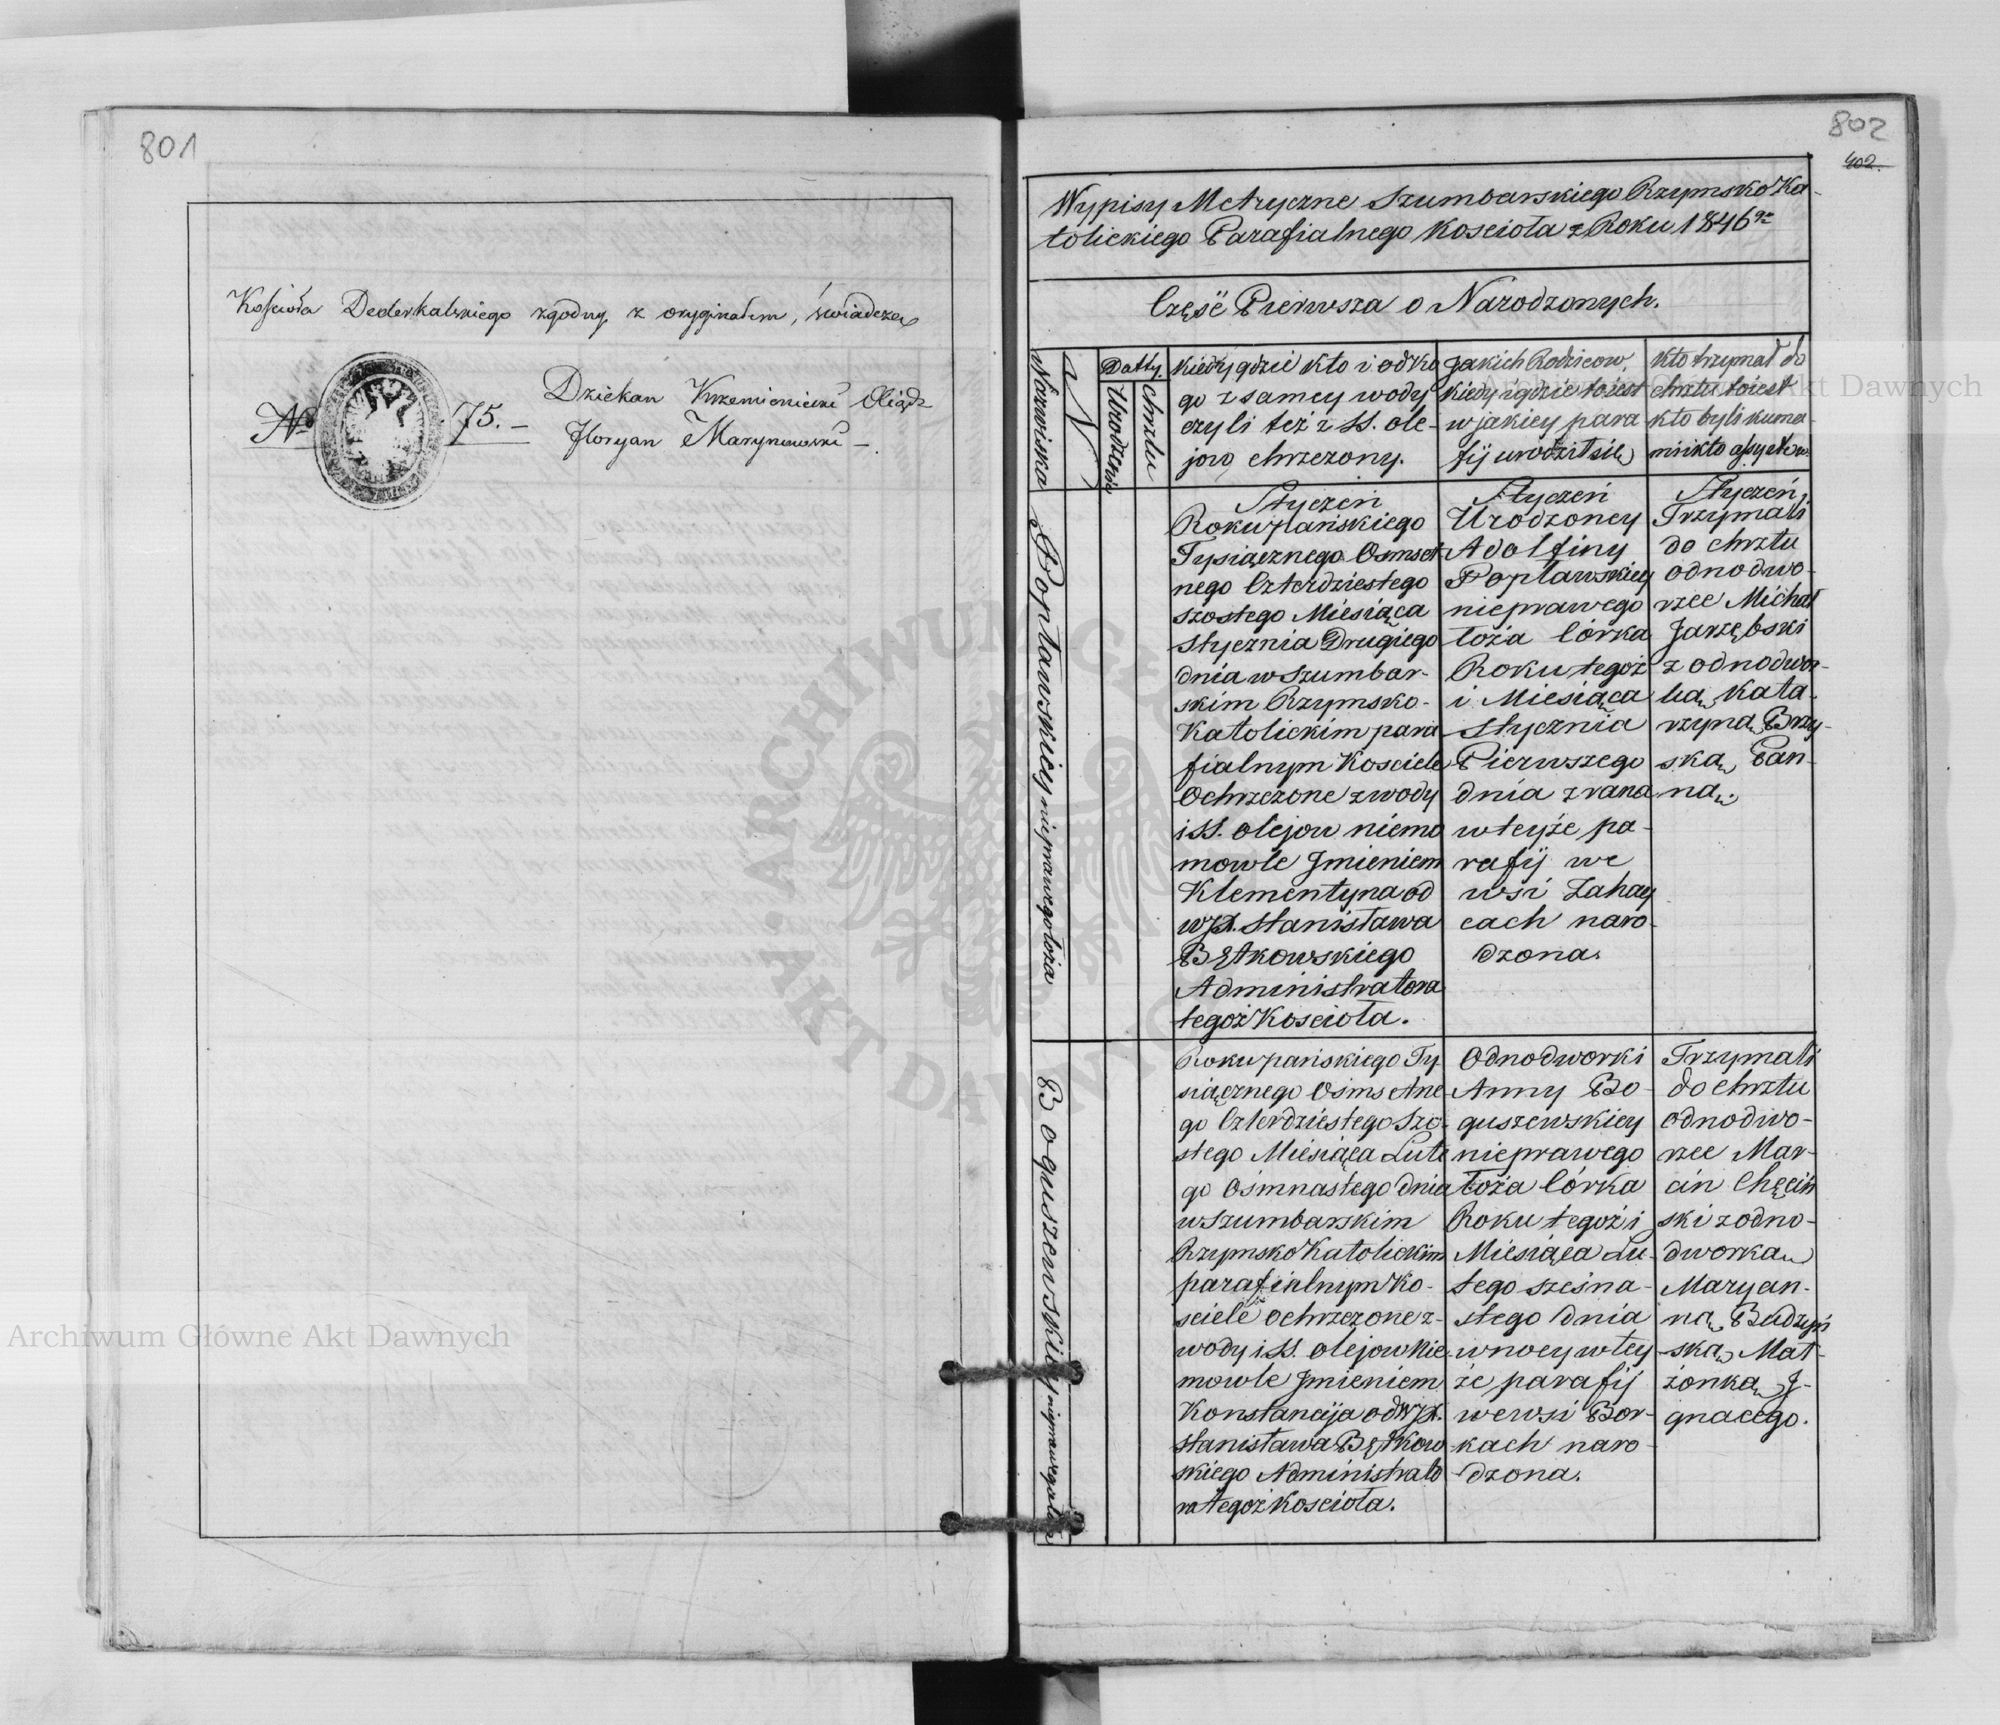 801
Kościoła Dederkalskiego zgodny z oryginałem, świadczę
№ 75.–
Dziekan Krzemieniecki Xiądz
Floryan Marynowski –
802
402.
Wypisy Metryczne Szumbarskiego Rzymsko Ka-
tolickiego Parafialnego Kosciola z Roku 1846go
Część Pierwsza o Narodzonych.
Nazwiska
N
Datty.
Urodzenia
Chrztu
Kiedy gdzie kto i odko
go z samey wody
czyli też z SS. ole-
jow chrzczony.
Jakich Rodzicow,
Kiedy i gdzie toiest
w jakiey para
fij urodził się
Kto trzymał do
chrztu toiest
kto byli kuma-
mi i kto assystow.
Popławskiey nieprawego łoża
Styczeń
Roku pańskiego
Tysiącznego Osmset
nego Czterdziestego
szostego Miesiąca
Stycznia Drugiego
dnia w Szumbar-
skim Rzymsko-
Katolickim para
fialnym Kosciele
Ochrzczone z wody
i SS. olejow niemo
mowle Jmieniem
Klementyna od
WJX. Stanisława
Bętkowskiego
Administratora
tegoż Kościoła.
Styczeń
Urodzoney
Adolfiny
Popławskiey
nieprawego
łoża Córka
Roku tegoż
i Miesiąca
Stycznia
Pierwszego
dnia z rana
w teyże pa-
rafij we
wsi Zahay
cach naro-
dzona.
Styczeń,
Trzymali
do chrztu
odnodwo-
rzec Michał
Jarzębski
z odnodwor-
ką Kata-
rzyną Brzy-
ską Pan-
ną.
Boguszewskiey nieprawego łoża
Roku pańskiego Ty
siącznego Osmsetne
go Czterdziestego Szo-
stego Miesiąca Lute
go Osmnastego dnia
w Szumbarskim
Rzymsko Katolickim
parafialnym Ko-
sciele ochrzczone z-
wody i SS. olejow Nie
mowle Jmieniem
Konstancija od WJX.
Stanisława Bętkow
skiego Administrato
ra tegoż Kościoła.
Odnodworki
Anny Bo-
guszewskiey
nieprawego
łoża Córka
Roku tegoż i
Miesiąca Lu-
tego szesna-
stego dnia
w nocy w tey
że parafij
we wsi Bor-
kach naro-
dzona.
Trzymali
do chrztu
odnodwo-
rzec Mar-
cin Chęciń
ski z odno-
dworką
Maryan-
ną Budzyń
ską Mał-
żonką J-
gnacego.
Archiwum Główne Akt Dawnych
Archiwum Główne Akt Dawnych
ARCHIWUM GŁÓWNE AKT DAWNYCH